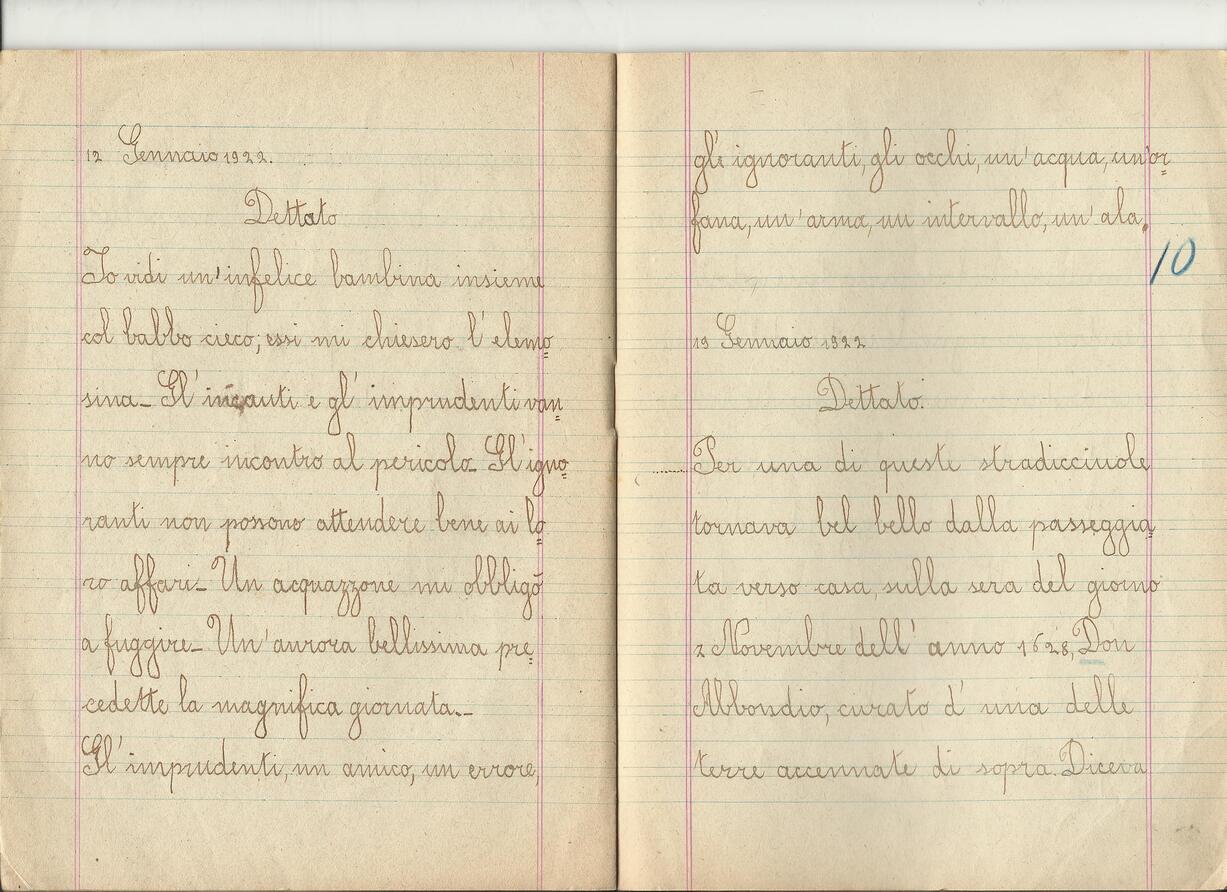 12 Gennaio 1922.
Dettato
Io vidi un'infelice bambina insieme
col babbo cieco; essi mi chiesero l'elemo=
sina_ Gl'incauti e gl'imprudenti van=
no sempre incontro al pericolo_ Gl'igno=
ranti non possono attendere bene ai lo=
ro affari_ Un acquazzone mi obbligò
a fuggire_ Un'aurora bellissima pre=
cedette la magnifica giornata._
Gl'imprudenti, un amico, un errore,
gl'ignoranti, gli occhi, un'acqua, un'or=
fana, un'arma, un intervallo, un'ala.
10
19 Gennaio 1922
Dettato.
Per una di queste stradicciuole
tornava bel bello dalla passeggia=
ta verso casa, sulla sera del giorno
2 Novembre dell'anno 1628, Don
Abbondio, curato d'una delle
terre accennate di sopra. Diceva